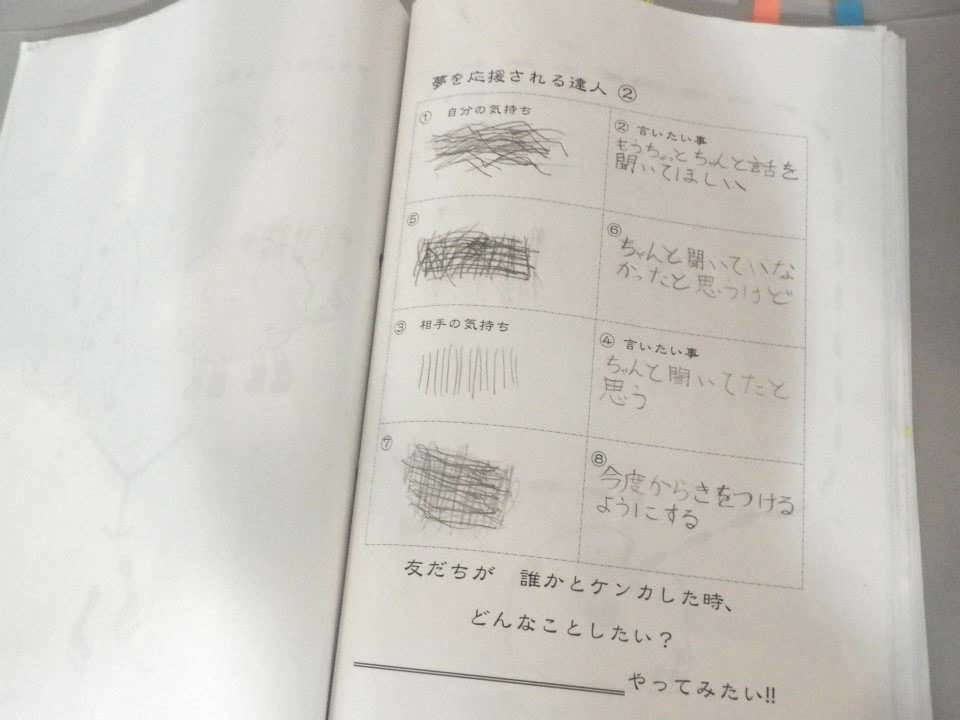 夢を応援される達人 ②
① 自分の気持ち
② 言いたい事
もうちょっとちゃんと話を
聞いてほしい
⑤
⑥
ちゃんと聞いていな
かったと思うけど
③ 相手の気持ち
④ 言いたい事
ちゃんと聞いてたと
思う
⑦
⑧
今度からきをつける
ようにする
友だちが 誰かとケンカした時、
どんなことしたい？
やってみたい!!